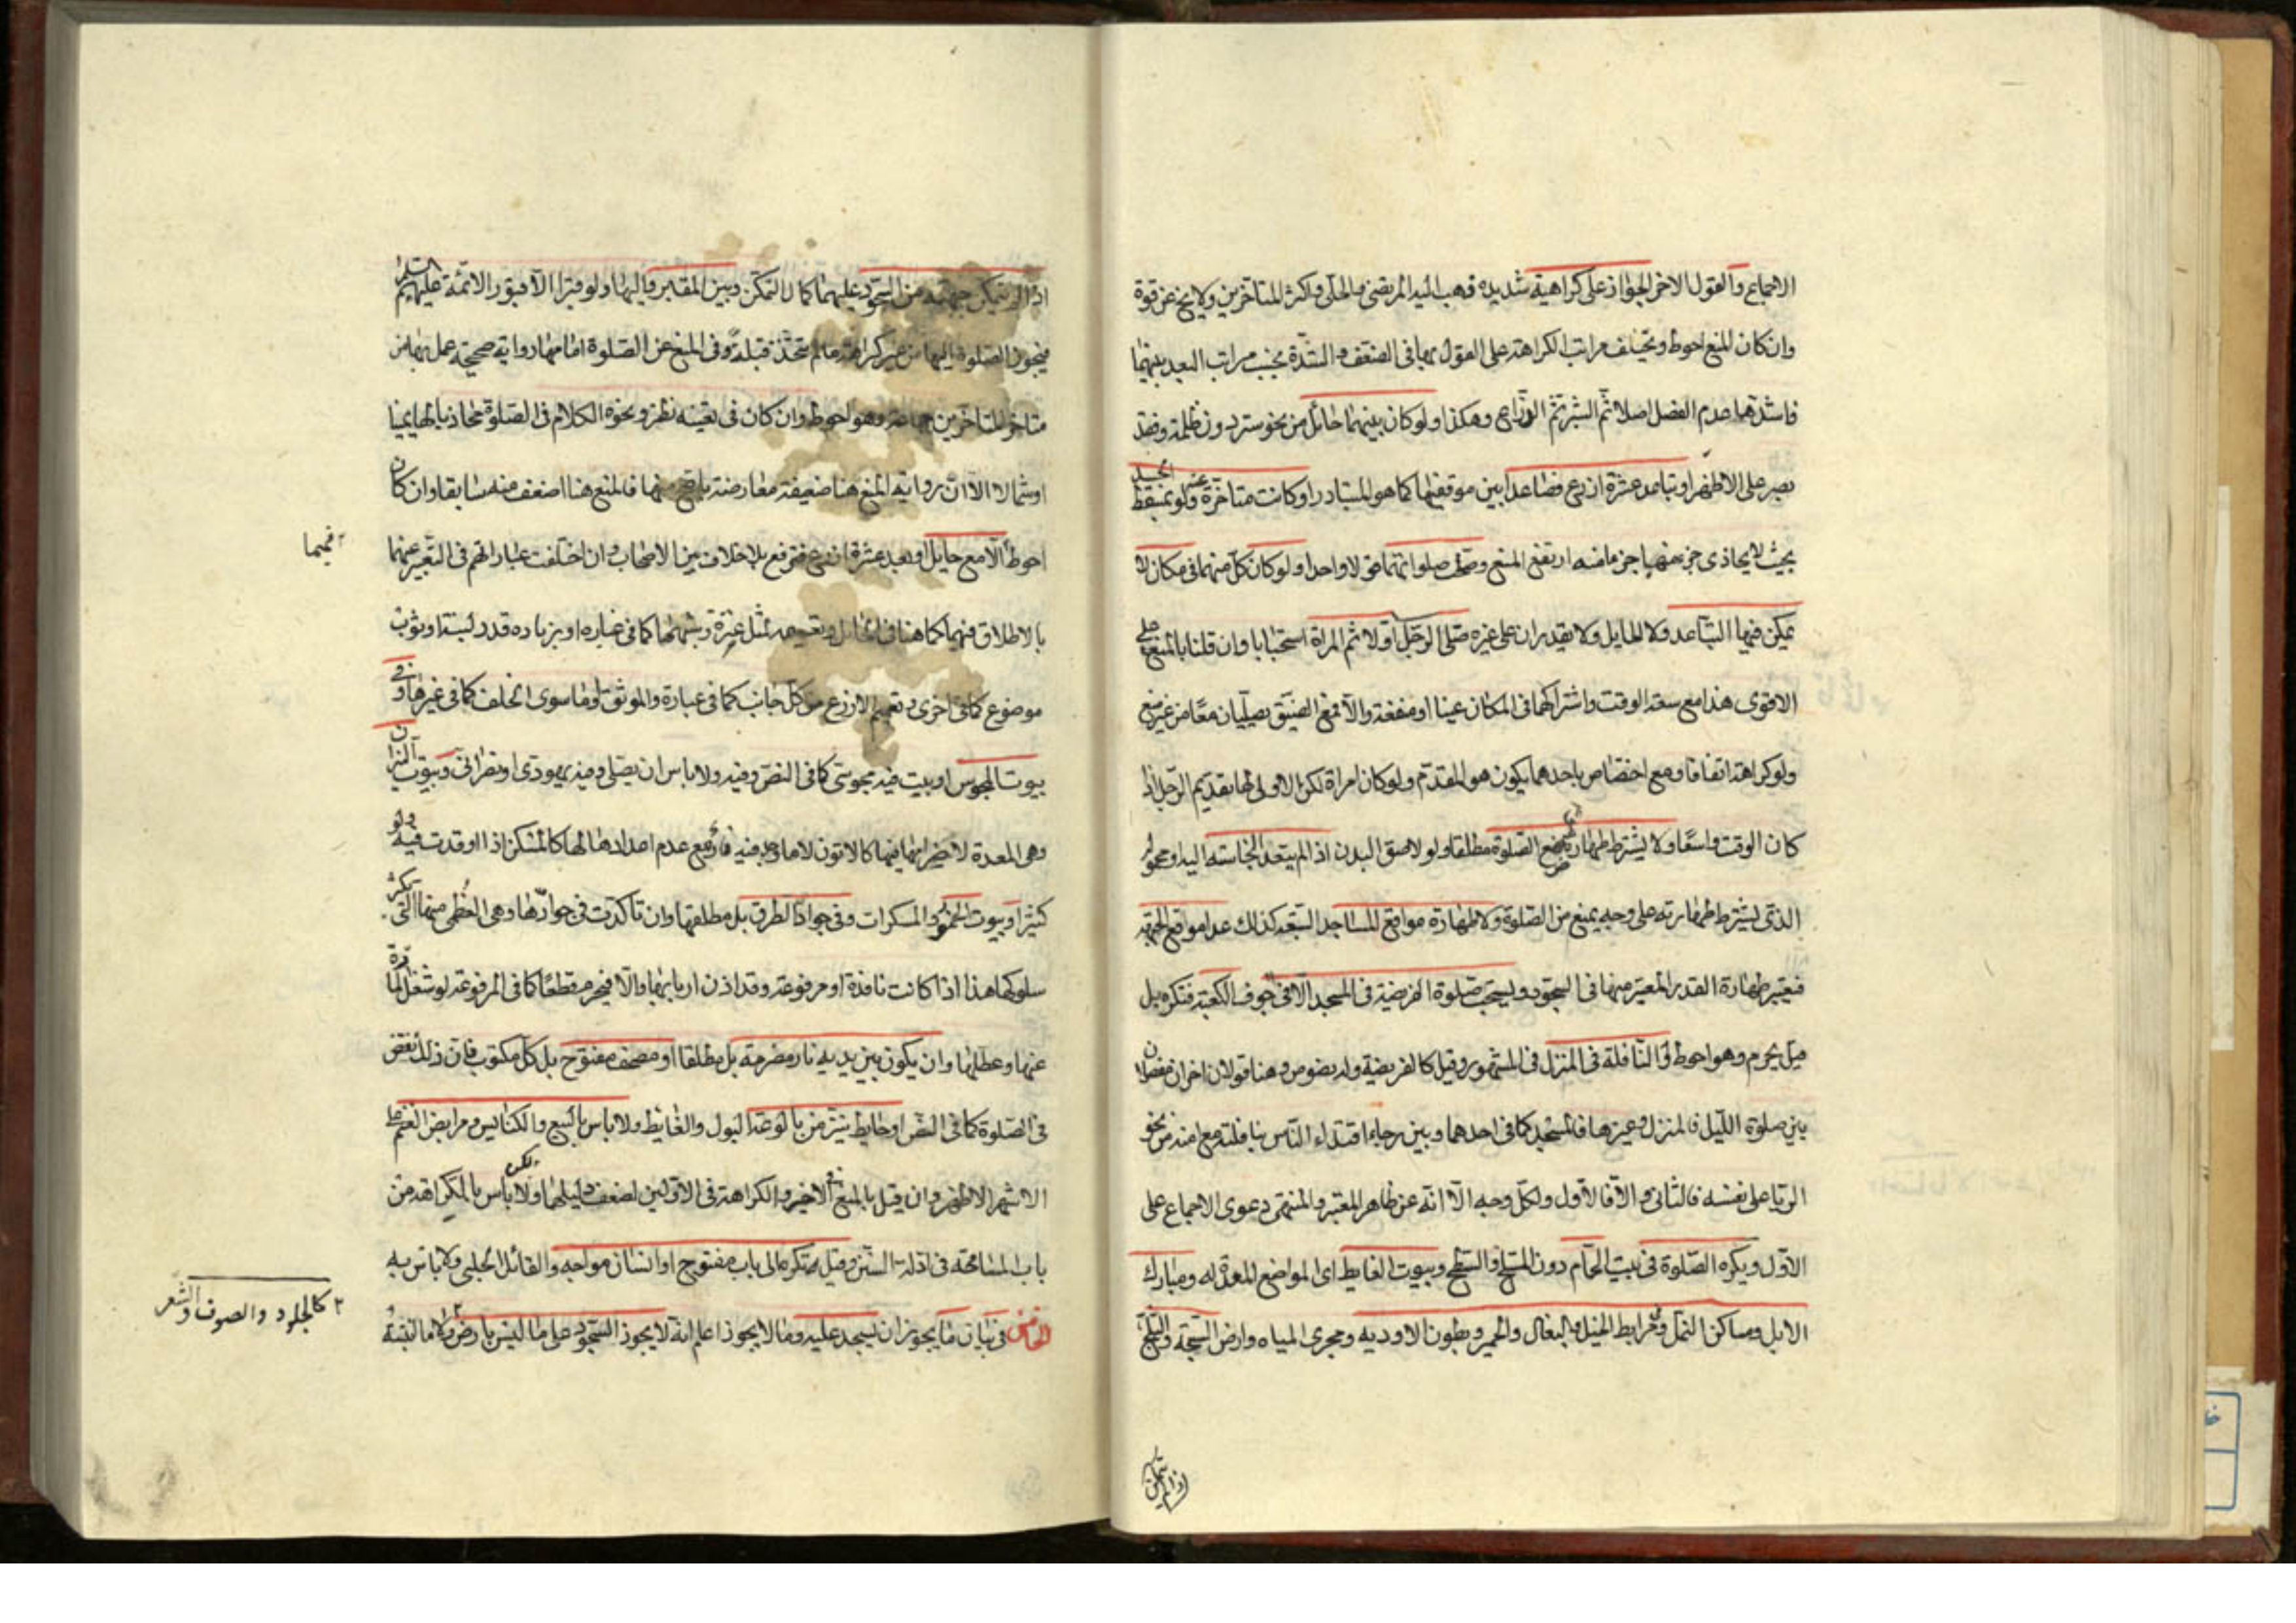 الاجماع والقول الاخر الجواز على كراهية شديدة ذهب اليه المرتضى والحلى واكثر المتاخرين ولا يخ عن قوة
وان كان المنع احوط وتختلف مراتب الكراهة على القول بها فى الضعف والشدة بحسب مراتب البعد بينهما
فاشدها عدم الفصل اصلا ثم الشبر ثم الذراع وهكذا ولو كان بينهما حائل من نحو ستر دون ظلمة وفقد
بصر على الاظهر او تباعد عشرة اذرع فصاعدا بين موقفيهما كما هو المتبادر او كانت متاخرة عنه ولو بمسقط الجسد
بحيث لا يحاذى جزء منها جزء منه ارتفع المنع وصحت صلواتهما قولا واحدا ولو كان كل منهما فى مكان لا
يمكن فيها التباعد ولا الحايل ولا يقدران على غيره صلى الرجل اولا ثم المراة استحبابا وان قلنا بالمنع على
الاقوى هذا مع سعة الوقت واشتراكهما فى المكان عينا او منفعة والا فمع الضيق يصليان معا من غير منع
ولو كراهة اتفاقا ومع اختصاص باحدهما يكون هو المقدم ولو كان امراة لكن الاولى لها تقديم الرجل اذا
كان الوقت واسعا ولا يشترط طهارة موضع الصلوة مطلقا ولو لاصق البدن اذا لم يتعد النجاسة اليه او محموله
الذى يشترط طهارته على وجه يمنع من الصلوة ولا طهارة مواقع المساجد السبعة كذلك عدا موقع الجبهة
فيعتبر طهارة القدر المعتبر منها فى السجود ويستحب صلوة الفريضة فى المسجد الا فى جوف الكعبة فتكره بل
قيل يحرم وهو احوط والنافلة فى المنزل فى المشهور وقيل كالفريضة وله نصوص وهنا قولان اخران مفصلان
بين صلوة الليل فالمنزل وغيرها فالمسجد كما فى احدهما وبين رجاء اقتداء الناس بنافلته مع امنه من نحو
الريا على نفسه فالثانى والا فالاول ولكل وجه الا انه عن ظاهر المعتبر والمنتهى دعوى الاجماع على
الاول ويكره الصلوة فى بيت الحمام دون المسلخ والسطح وبيوت الغايط اى المواضع المعدة له ومبارك
الابل ومساكن النمل ومرابط الخيل والبغال والحمير وبطون الاودية ومجرى المياه وارض السبخة والثلج
اذا لم يتمكن
اذا لم يتمكن جبهته من السجود عليهما كمال التمكن وبين المقابر واليها ولو قبرا الا قبور الائمة عليهم السلم
فيجوز الصلوة اليها من غير كراهة مالم يتخذ قبلة وفى المنع عن الصلوة امامها رواية صحيحة عمل بها من
متاخر المتاخرين جماعة وهو احوط وان كان فى تعينه نظر ونحوه الكلام فى الصلوة محاذيا لها يمينا
او شمالا الا ان رواية المنع هنا ضعيفة معارضة باصح منها فالمنع هنا اضعف منه سابقا وان كان
احوط الا مع حايل او بعد عشرة اذرع فترفع بلا خلاف بين الاصحاب وان اختلفت عباراتهم فى التعبير عنهما
بالاطلاق فيهما كما هنا
موضوع كما فى اخرى وتعميم الاذرع من كل جانب كما فى عبارة والموثق او ما سوى الخلف كما فى غيرها وفى
بيوت المجوس او بيت فيه مجوسى كما فى النص وفيه ولا باس ان يصلى وفيه يهودى او نصرانى وبيوت النيران
وهى المعدة لاضرامها فيها كالاتون لا ما وجد فيه نار مع عدم اعدادها لها كالمسكن اذا اوقدت فيه ولو
كثيرا وبيوت الخمور والمسكرات وفى جواد الطرق بل مطلقها وان تاكدت فى جوادها وهى العظمى منها التى يكثر
سلوكها هذا اذا كانت نافذة او مرفوعة وقد اذن اربابها والا فيحرم قطعا كما فى المرفوعة لو شغل المارة
عنها وعطلها وان يكون بين يديه نار مضرمة بل مطلقا او مصحف مفتوح بل كل مكتوب فان ذلك نقص
فى الصلوة كما فى النص او حايط ينز من بالوعة البول والغائط ولا باس بالبيع والكنايس ومرابض الغنم على
الاشهر الاظهر وان قيل بالمنع فى الاخير والكراهة فى الاولين لضعف دليلهما ولكن لا باس بالكراهة من
باب المسامحة فى ادلة السنن وقيل تكره الى باب مفتوح او انسان مواجه والقائل الحلبى ولا باس به
الخامس فى بيان ما يجوز ان يسجد عليه وما لا يجوز اعلم انه لا يجوز السجود على ما ليس بارض ولا ما انبتته
فيهما
٢ كالجلود والصوف والشعر